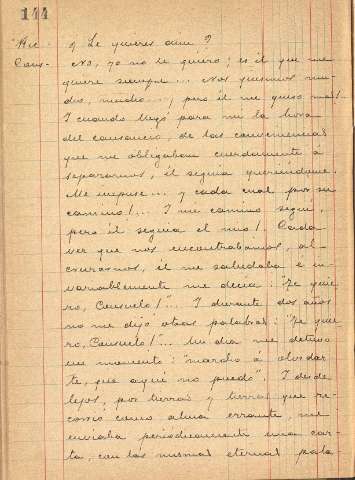 144
"Ric - ¿Le quieres aun?
Cons- No, yo no le quiero; es él que me
quiere siempre... Nos quisimos mu-
cho, mucho...; pero él me quiso más.
I cuando llegó para mi la hora
del cansancio, de las conveniencias
que me obligaban cuerdamente á
separarnos, él seguia queriéndome.
Me impuse... y cada cual por su
camino!... I mi camino seguí,
pero él seguia el mio! Cada
vez que nos encontrabamos,
él me saludaba é in-
variablemente me decia: "Te quie-
ro, Consuelo!"... I durante dos años
no me dijo otras palabras: "Te quie-
ro, Consuelo!"... Un dia me detuvo
un momento: "marcho á olvidar-
te, que aqui no puedo". I desde
lejos, por tierras y tierras que re-
corrió como alma errante, me
enviaba periodicamente una car-
ta, con las mismas eternas pala-